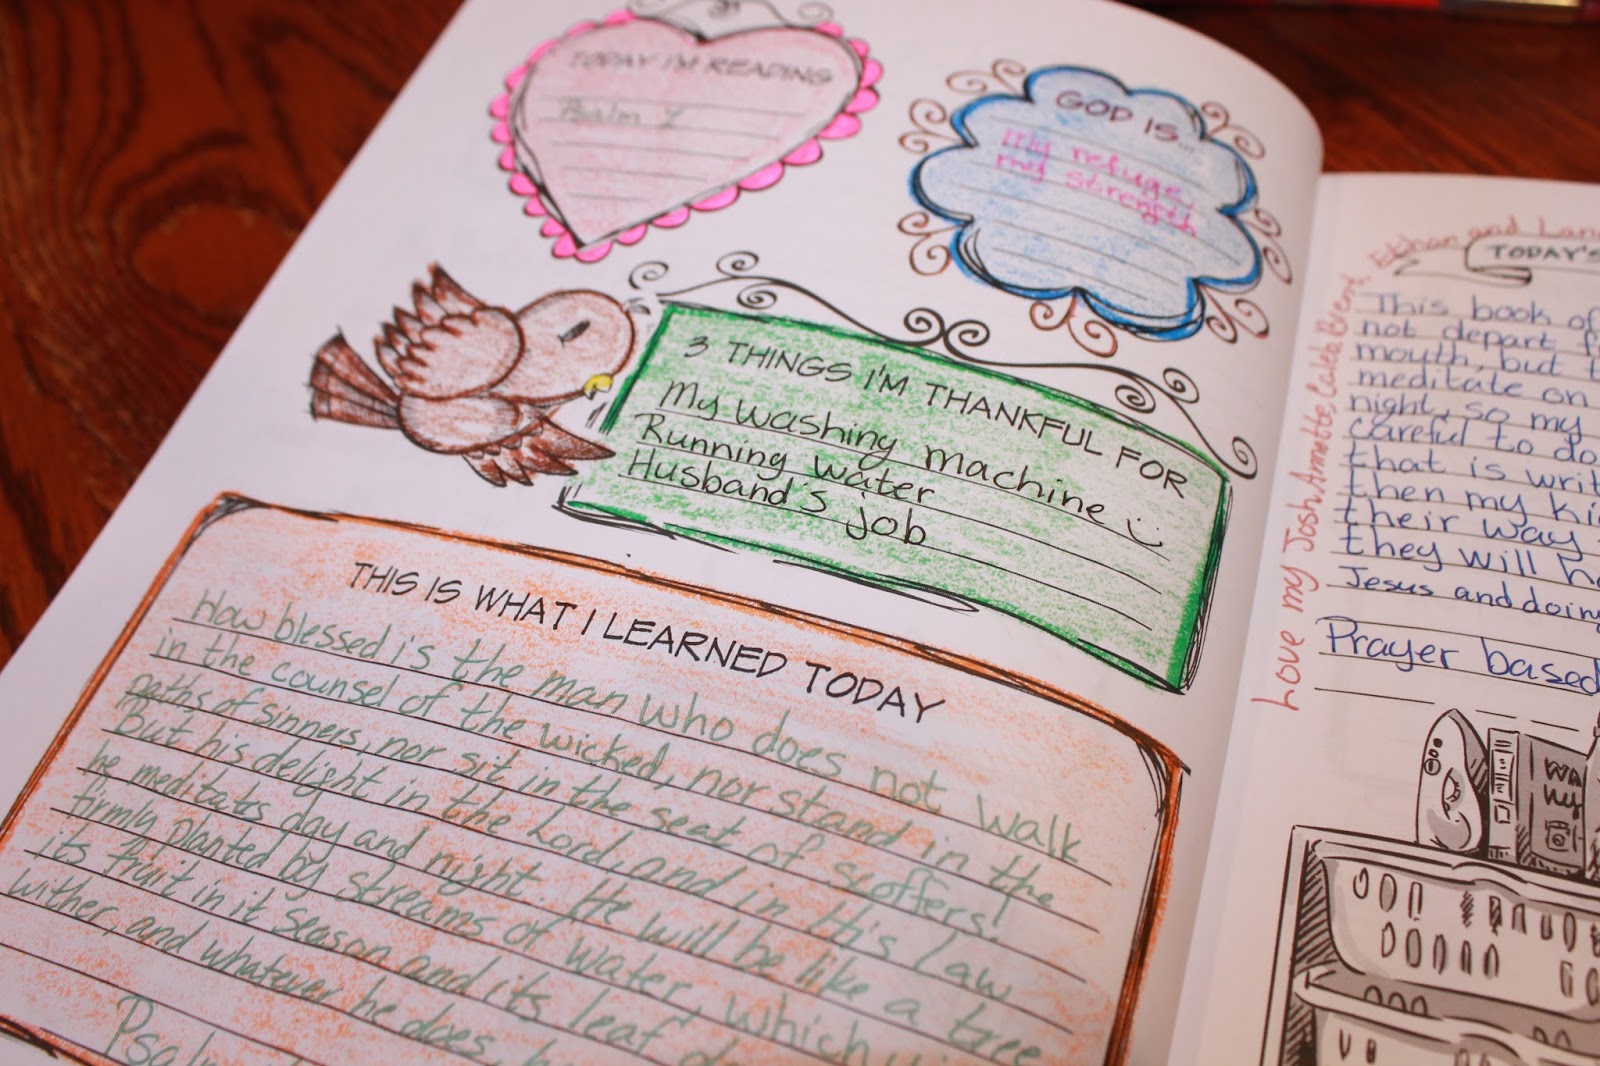 TODAY I'M READING
Psalm 1
GOD IS...
My refuge,
my strength
3 THINGS I'M THANKFUL FOR
My washing machine
Running water
Husband's job
THIS IS WHAT I LEARNED TODAY
How blessed is the man who does not walk
in the counsel of the wicked, nor stand in the
paths of sinners, nor sit in the seat of scoffers!
But his delight in the Lord, and in His Law
he meditats day and night. He will be like a tree
firmly planted by streams of water, which
its fruit in it season and its leaf
wither, and whatever he does,
Love my Josh, Annette, Caleb, Brent, Ethan and
TODAY'S
This book of
not depart
mouth, but
meditate on
night, so my
careful to do
that is
then my
their way
they will
Jesus and doing
Prayer based